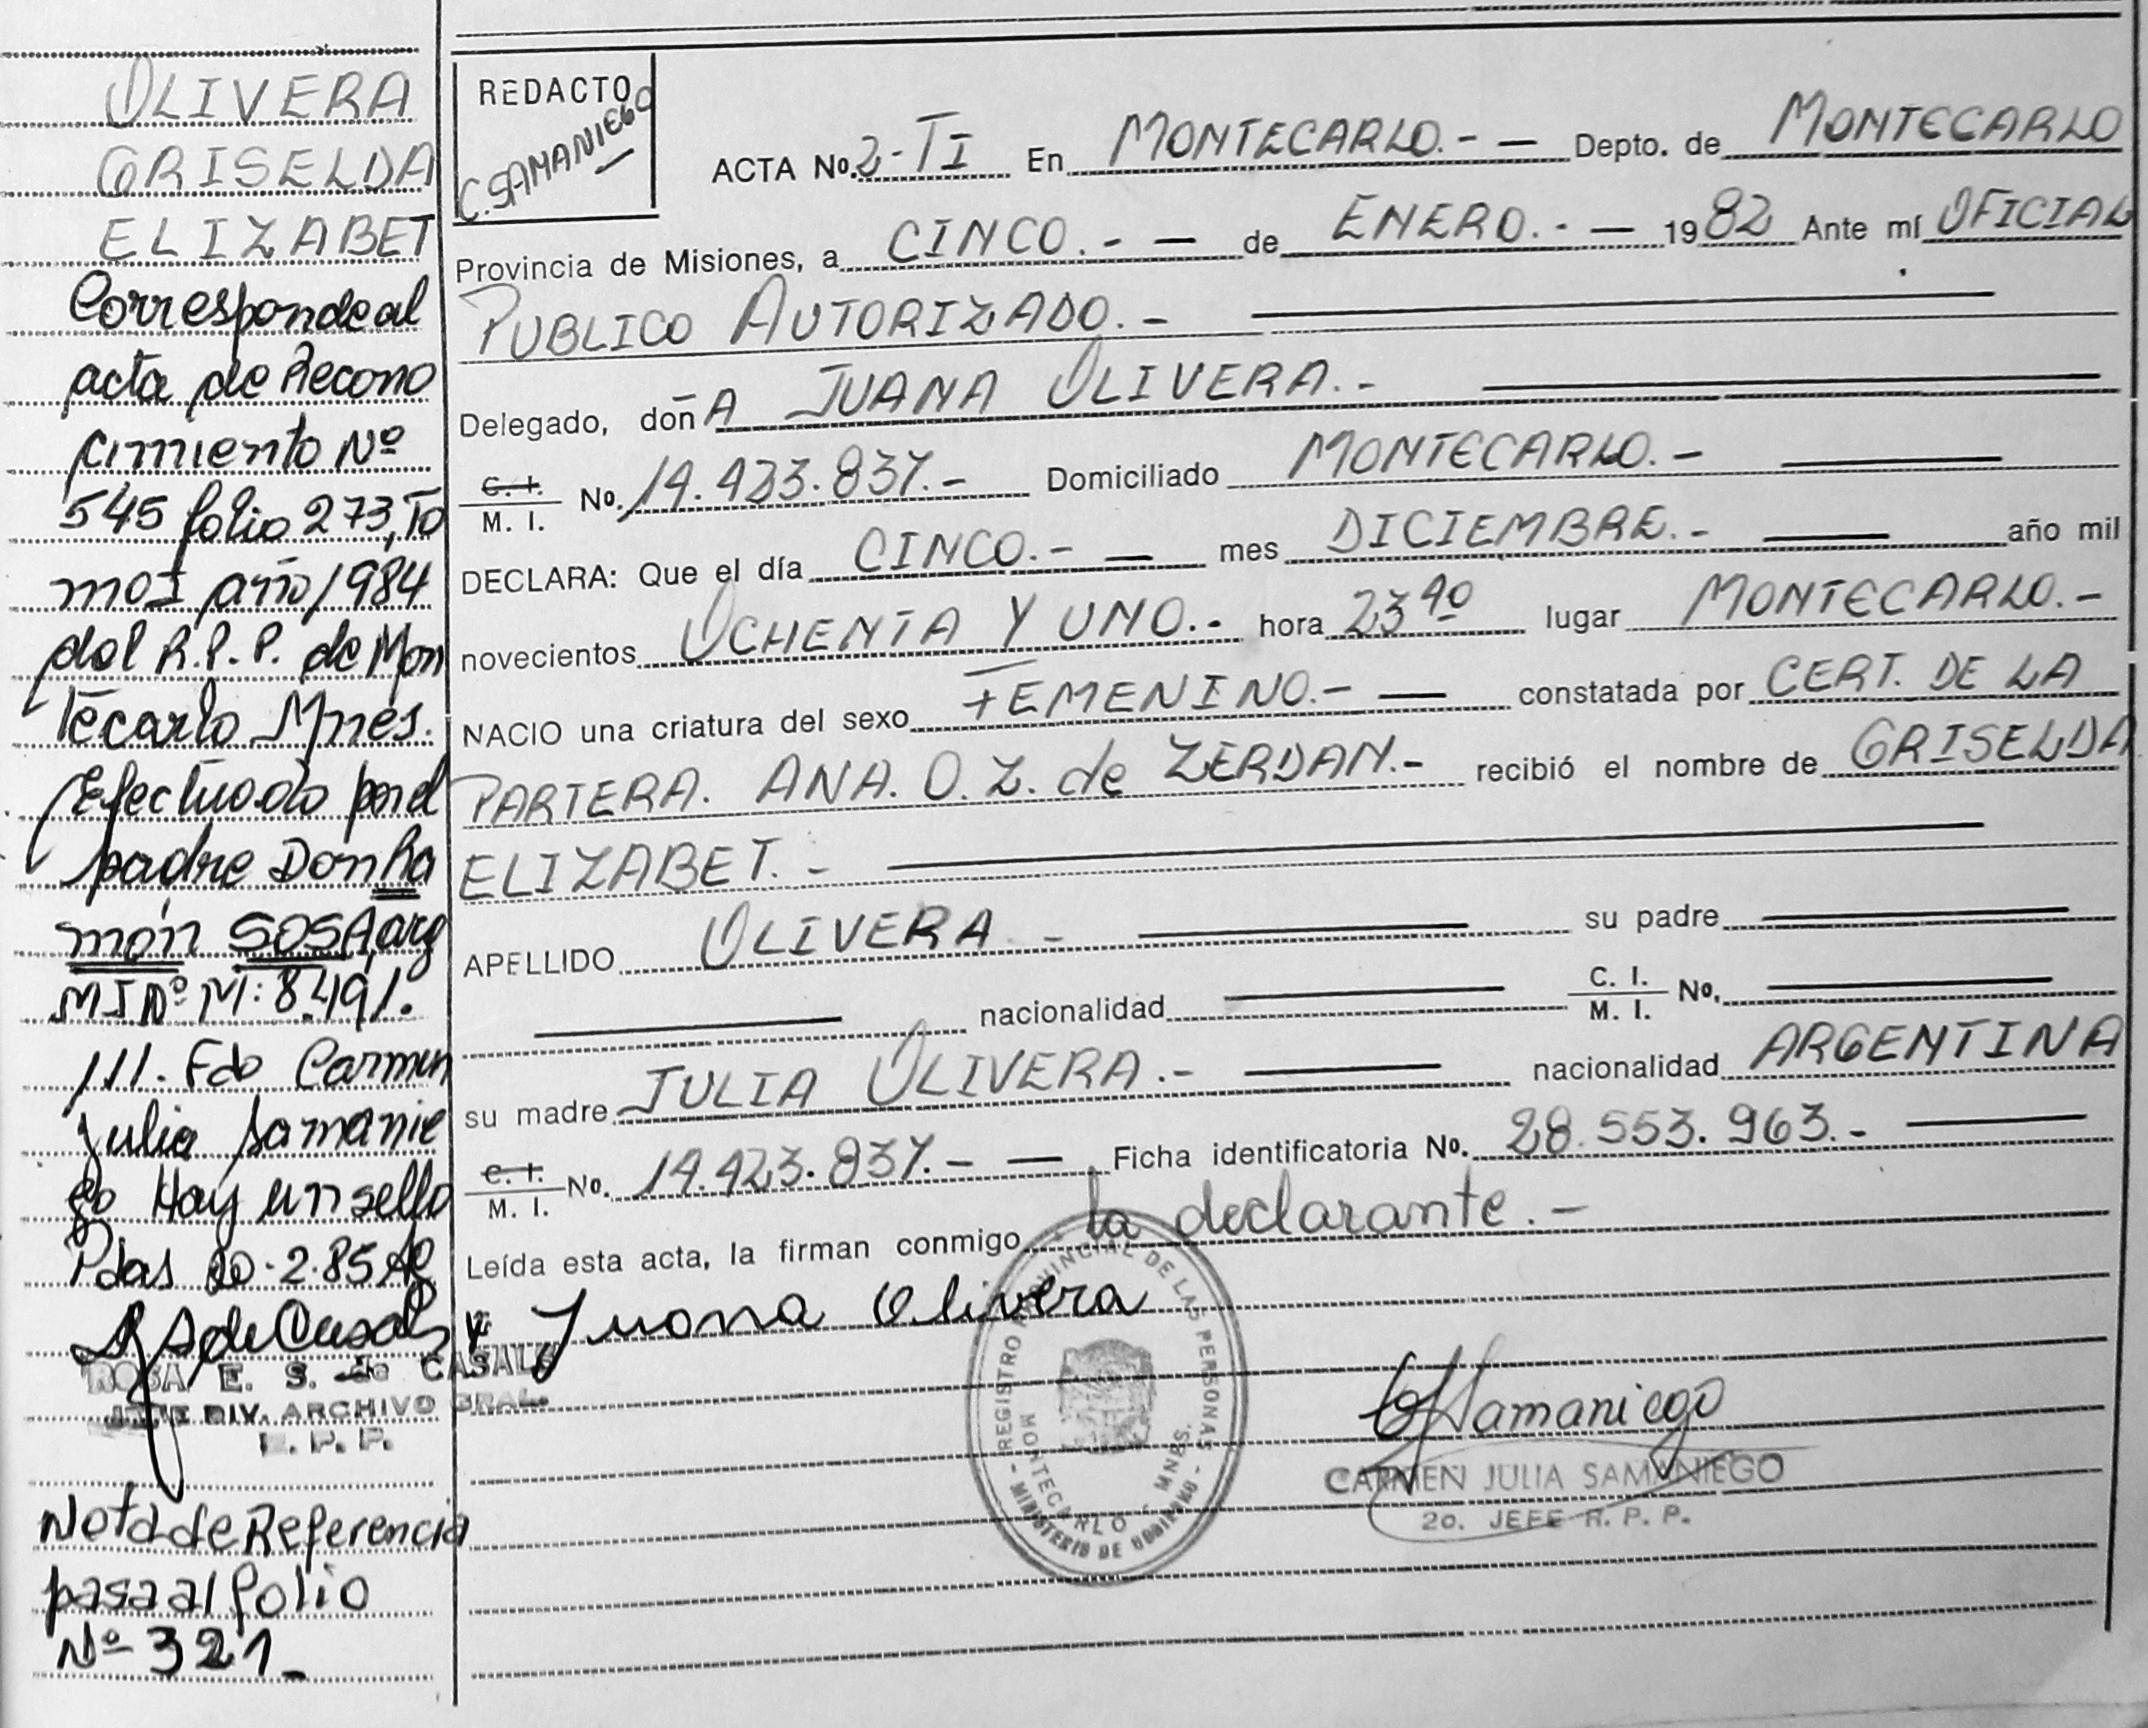 OLIVERA
GRISELDA
ELIZABET
Corresponde al
acta de Recono
cimiento Nº
545 folio 273, To
mo I año 1984
del R.P.P. de Mon
tecarlo Mnes.
Efectuado por el
padre Don Ra
món SOSA, arg
MI Nº M: 8.191.
111. Fdo Carmen
Julia Samanie
go Hay un sello
Pdas 20-2-85
ROSA E. S. de CASALS
JEFE DIV. ARCHIVO GRAL.
R. P. P.
Nota de Referencia
pasa al folio
Nº 321_
REDACTO
C. SAMANIEGO
ACTA No. 2-TI En MONTECARLO.- — Depto. de MONTECARLO
Provincia de Misiones, a CINCO.- — de ENERO.- — 1982 Ante mí OFICIAL
PUBLICO AUTORIZADO.-
Delegado, doñA JUANA OLIVERA.-
C. I. / M. I. No. 14.423.837.- Domiciliado MONTECARLO.-
DECLARA: Que el día CINCO.- — mes DICIEMBRE.- — año mil
novecientos OCHENTA Y UNO.- hora 23 40 lugar MONTECARLO.-
NACIO una criatura del sexo FEMENINO.- — constatada por CERT. DE LA
PARTERA. ANA. O. Z. de ZERDAN.- recibió el nombre de GRISELDA
ELIZABET.-
APELLIDO OLIVERA - su padre
nacionalidad C. I. / M. I. No.
su madre JULIA OLIVERA.- nacionalidad ARGENTINA
C. I. / M. I. No. 14.423.837.- — Ficha identificatoria No. 28.553.963.-
Leída esta acta, la firman conmigo la declarante.-
Juana Olivera
REGISTRO PROVINCIAL DE LAS PERSONAS
MONTECARLO - MNES.
- MINISTERIO DE GOBIERNO -
CJSamaniego
CARMEN JULIA SAMANIEGO
2o. JEFE R. P. P.